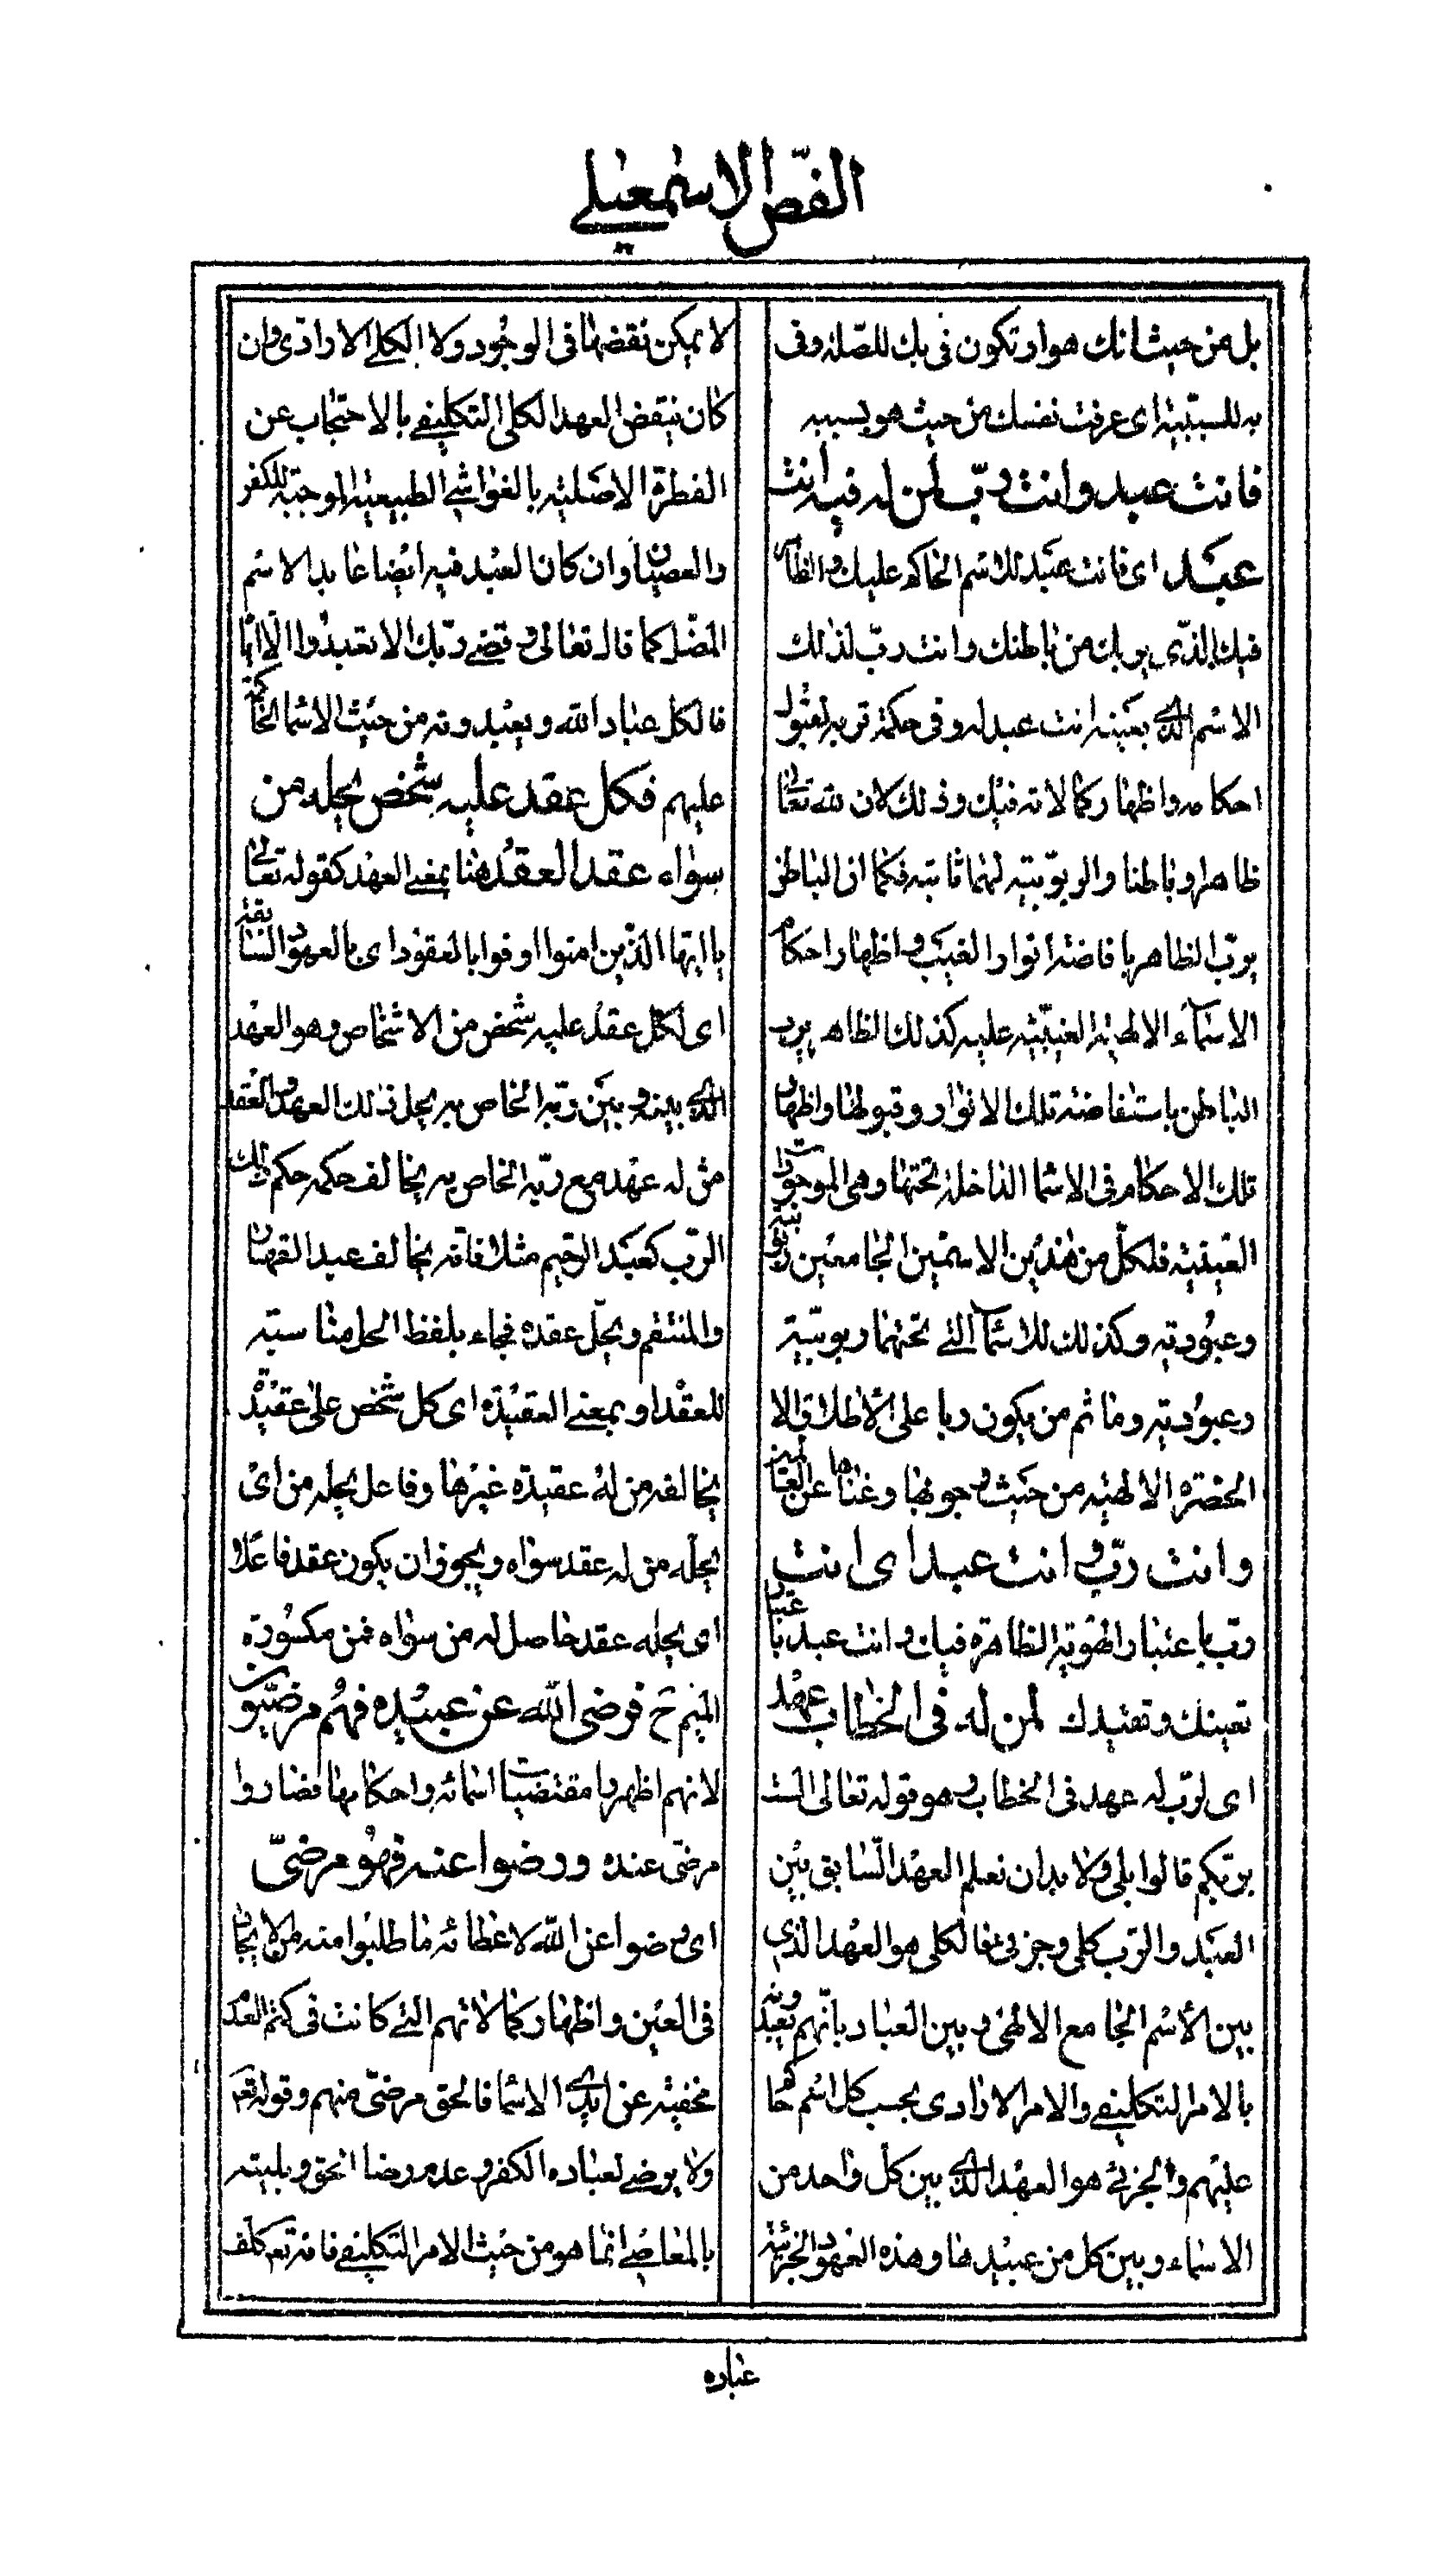 الفصّ الاسمعيلي
بل من حيث انك هو او تكون في بك للصّلة وفي
به للسببيّة اى عرفت نفسك من حيث هو بسببه
فانت عبد وانت ربّ لمن له فيه انت
عبد اى فانت عبد لذلك الاسم الحاكم عليك والظاهر
فيك الذى يربك من باطنك وانت ربّ لذلك
الاسم الذي بعينه انت عبد له وفى حكمة تربه لقبول
احكامه واظهار كمالاته فيك وذلك لان لله تعالى
ظاهرا وباطنا والربوبيّة لهما ثابتة فكما ان الباطن
يربّ الظاهر بافاضة انوار الغيب واظهار احكام
الاسماء الالهية الغيبيّة عليه كذلك الظاهر يرب
الباطن باستفاضة تلك الانوار وقبولها واظهار
تلك الاحكام فى الاسما الداخلة تحتها وهى الموجودات
العينية فلكلّ من هذين الاسمين الجامعين ربوبية
وعبوديته وكذلك للاسما التي تحتهما ربوبيّة
وعبوديته وما ثم من يكون ربا على الاطلاق الا
الحضرة الالهيّة من حيث وجوبها وغناها عن العالمين
وانت ربّ وانت عبد اى انت
ربّ باعتبار الهوية الظاهرة فيك وانت عبد باعتبار
تعينك وتقيدك لمن له فى الخطاب عهد
اى لرب له عهد فى الخطاب وهو قوله تعالى الست
بربكم قالوا بلى ولا بد ان نعلم العهد السّابق بين
العبد والرّب كلى وجزئى فالكلى هو العهد الذى
بين الاسم الجامع الالهى وبين العباد بانّهم يعبدونه
بالامر التكليفي والامر الارادى بحسب كل اسم حاكم
عليهم والجزئي هو العهد الذي بين كل واحد من
الاسماء وبين كل من عبيدها وهذه العهود الجزئية
لا يمكن نقضها فى الوجود ولا الكلي الارادى وان
كان ينتقض العهد الكلى التكليفي بالاحتجاب عن
الفطرة الاصلية بالغواشي الطبيعية الموجبة للكفر
والعصيان وان كان العبد فيه ايضا عابد الاسم
المضّل كما قال تعالى وقضي ربّك الا تعبدوا الّا ايّا
فالكل عباد الله ويعبدونه من حيث الاسما الحاكمة
عليهم فكل عقد عليه شخص يحله من
سواه عقد العقد هنا بمعني العهد كقوله تعالى
يا ايها الذين امنوا اوفوا بالعقود اى بالعهود السابقة
اى لكل عقد عليه شخص من الاشخاص وهو العهد
الذي بينه وبين ربّه الخاص به يحل ذلك العهد والعقد
من له عهد مع ربّه الخاص به يخالف حكمه حكم ذلك
الرّب كعبد الرّحيم مثلا فانّه يخالف عبد القهار
والمنتقم ويحلّ عقده فجاء بلفظ الحل مناسبته
للعقد او بمعني العقيدة اى كل شخص على عقيدة
يخالفه من له عقيدة غيرها وفاعل يحله من اى
يحلّه من له عقد سواه ويجوز ان يكون عقد فاعلا
اى يحله عقد حاصل له من سواه فمن مكسورة
الميم ح فرضى الله عن عبيده فهم مرضيّون
لانهم اظهروا مقتضيات اسمائه واحكامها فصاروا
مرضى عنده ورضوا عنه فهو مرضىّ
اى ورضوا عن الله لاعطائه ما طلبوا منه من الايجاد
فى العين واظهار كمالاتهم التي كانت فى كتم العدم
مخفية عن ايدي الاسما فالحق مرضىّ منهم وقوله تعم
ولا يرضي لعباده الكفر وعدم رضا الحق
بالمعاصي انما هو من حيث الامر التكليفي فانه تعم كلف
عباده